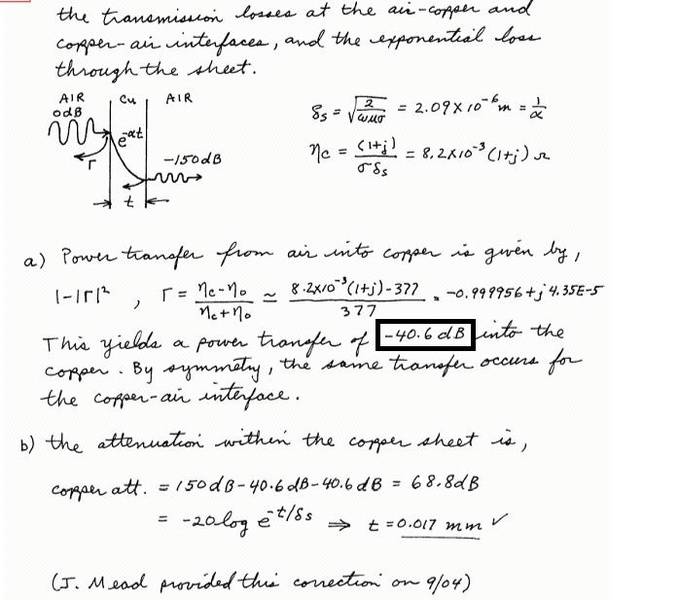 the transmission losses at the air-copper and
copper-air interfaces, and the exponential loss
through the sheet.
AIR Cu AIR
0dB
e^-αt
Γ
-150dB
t
δs = √(2/ωμσ) = 2.09 x 10^-6 m = 1/α
ηc = (1+j)/σδs = 8.2x10^-3 (1+j) Ω
a) Power transfer from air into copper is given by,
1-|Γ|² , Γ = (ηc-ηo)/(ηc+ηo) ≃ (8.2x10^-3(1+j)-377)/377 = -0.999956+j4.35E-5
This yields a power transfer of -40.6 dB into the
copper. By symmetry, the same transfer occurs for
the copper-air interface.
b) the attenuation within the copper sheet is,
copper att. = 150dB-40.6dB-40.6dB = 68.8dB
= -20log e^-t/δs ⇒ t = 0.017 mm ✓
(J. Mead provided this correction on 9/04)